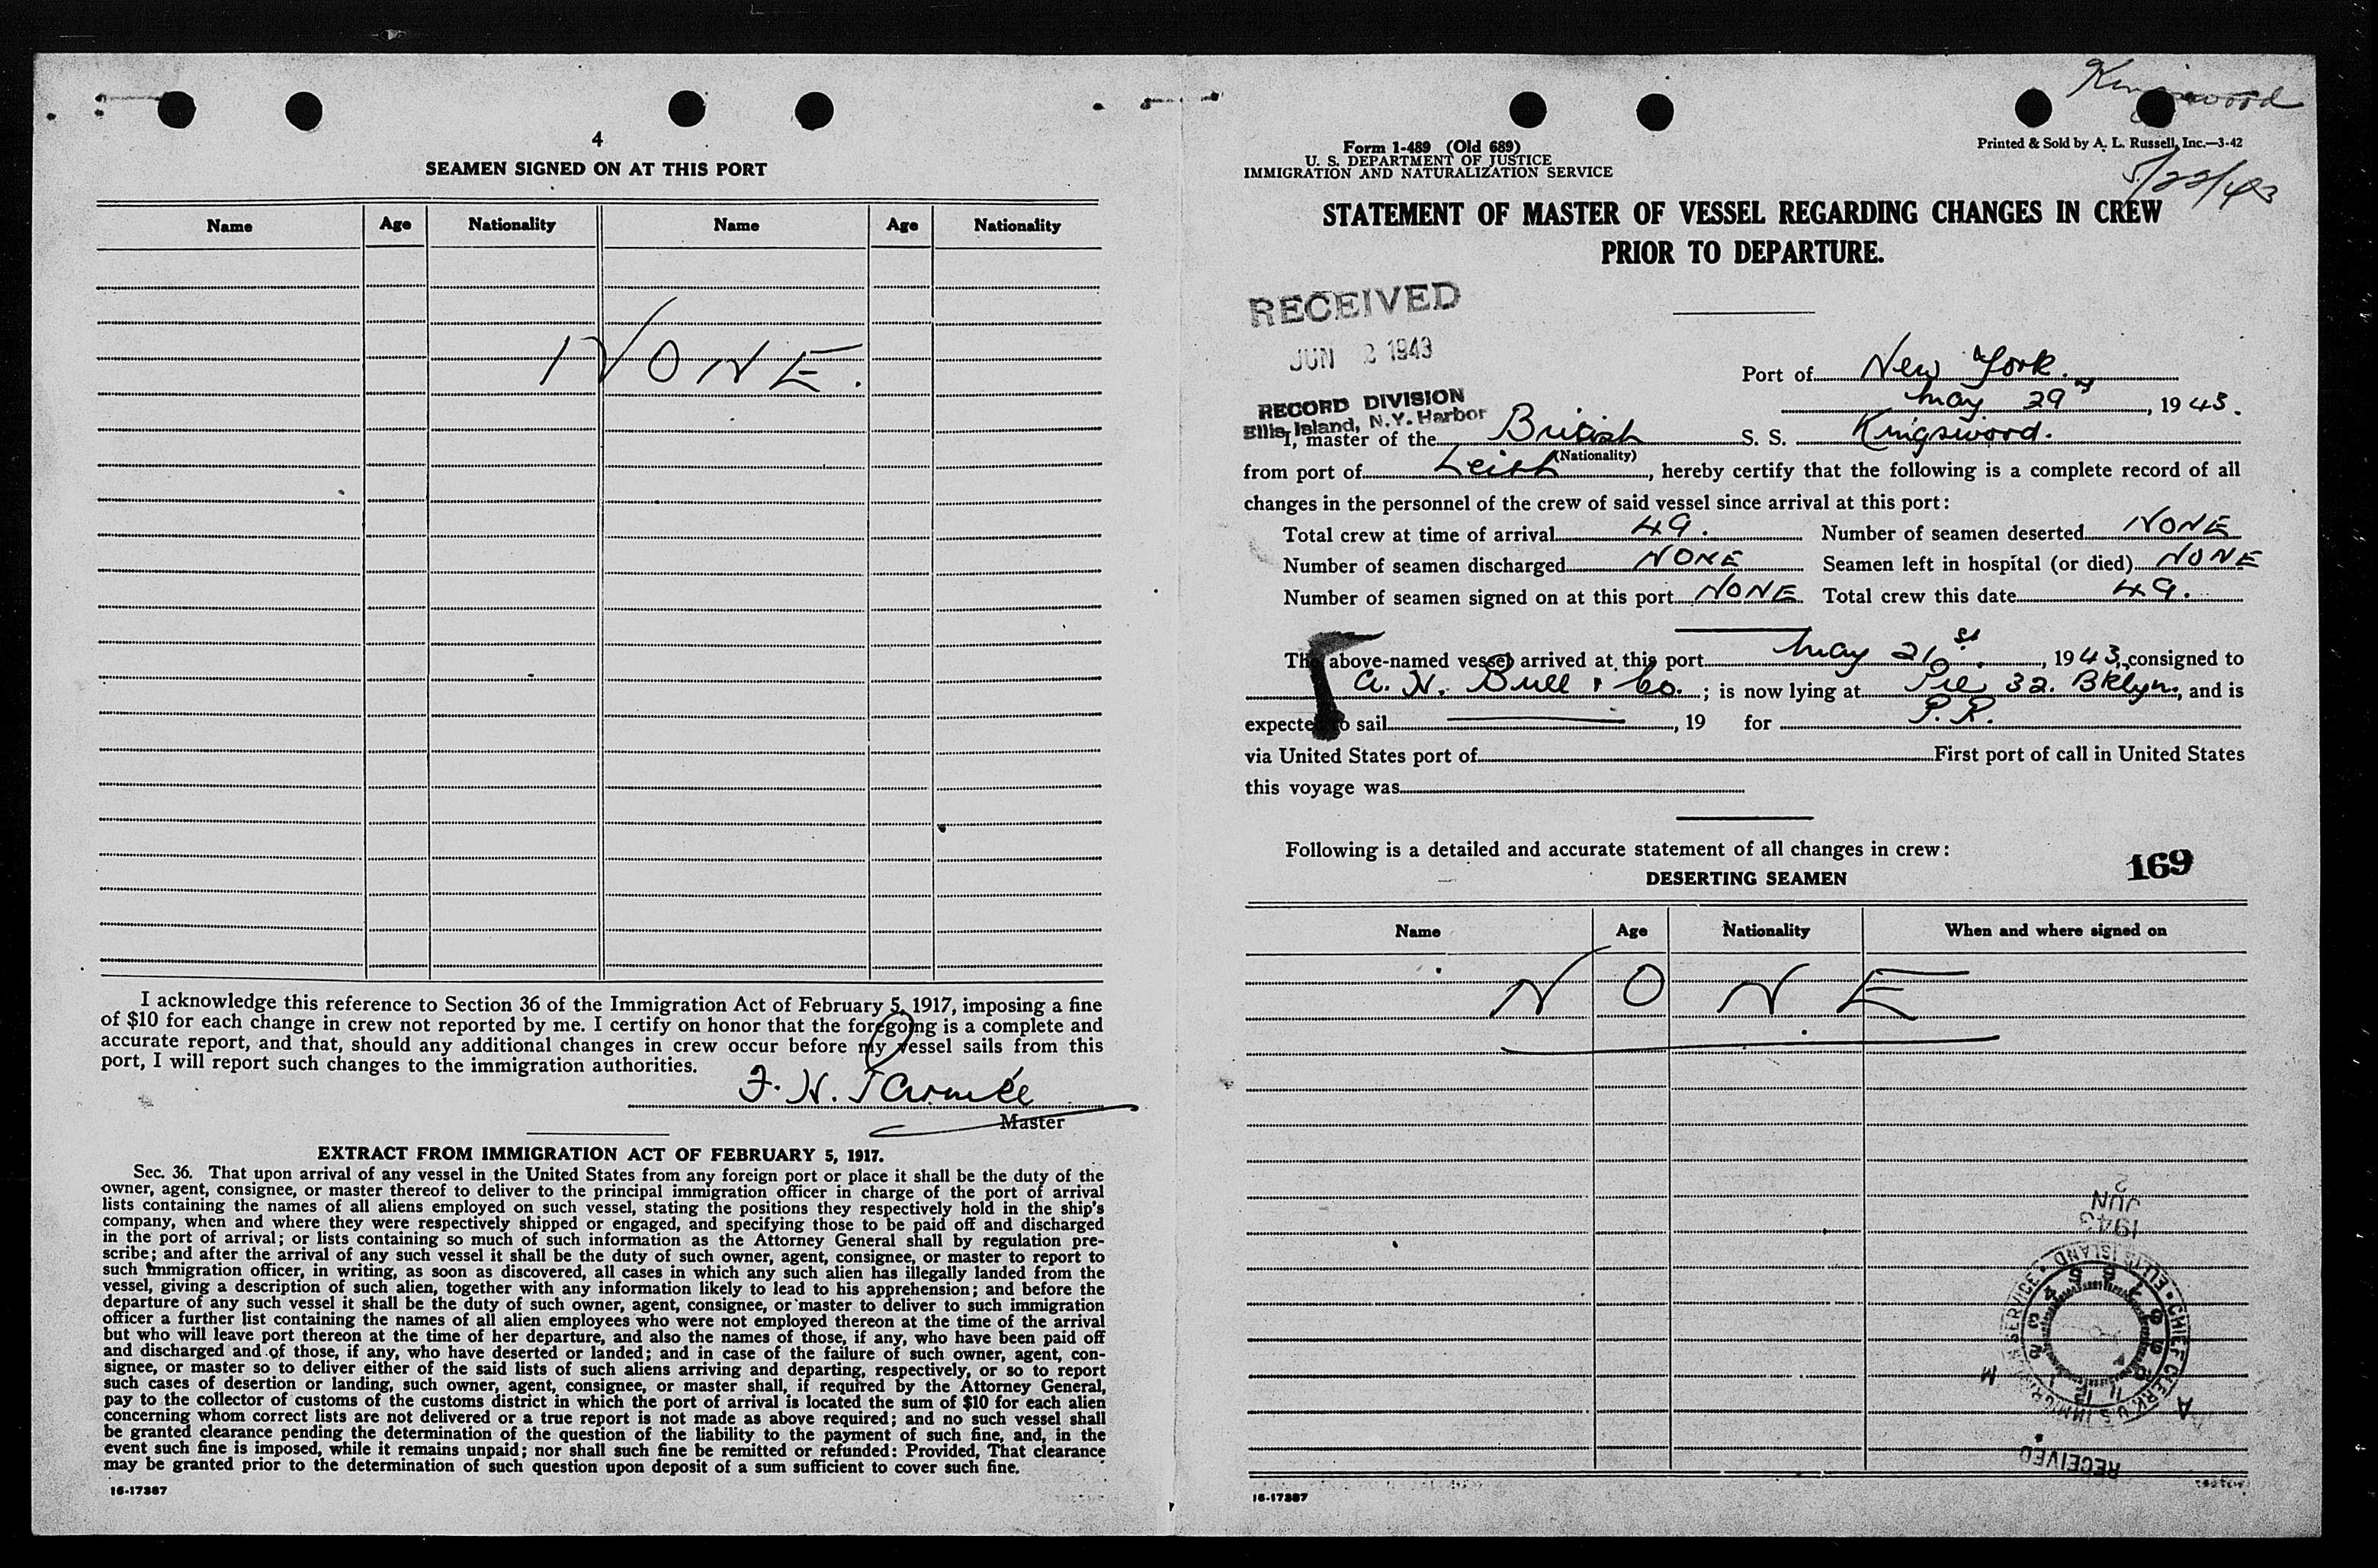 4
SEAMEN SIGNED ON AT THIS PORT
Name Age Nationality Name Age Nationality
NONE.
I acknowledge this reference to Section 36 of the Immigration Act of February 5, 1917, imposing a fine
of $10 for each change in crew not reported by me. I certify on honor that the foregoing is a complete and
accurate report, and that, should any additional changes in crew occur before my vessel sails from this
port, I will report such changes to the immigration authorities.
F. H.
Master
EXTRACT FROM IMMIGRATION ACT OF FEBRUARY 5, 1917.
Sec. 36. That upon arrival of any vessel in the United States from any foreign port or place it shall be the duty of the
owner, agent, consignee, or master thereof to deliver to the principal immigration officer in charge of the port of arrival
lists containing the names of all aliens employed on such vessel, stating the positions they respectively hold in the ship's
company, when and where they were respectively shipped or engaged, and specifying those to be paid off and discharged
in the port of arrival; or lists containing so much of such information as the Attorney General shall by regulation pre-
scribe; and after the arrival of any such vessel it shall be the duty of such owner, agent, consignee, or master to report to
such immigration officer, in writing, as soon as discovered, all cases in which any such alien has illegally landed from the
vessel, giving a description of such alien, together with any information likely to lead to his apprehension; and before the
departure of any such vessel it shall be the duty of such owner, agent, consignee, or master to deliver to such immigration
officer a further list containing the names of all alien employees who were not employed thereon at the time of the arrival
but who will leave port thereon at the time of her departure, and also the names of those, if any, who have been paid off
and discharged and of those, if any, who have deserted or landed; and in case of the failure of such owner, agent, con-
signee, or master so to deliver either of the said lists of such aliens arriving and departing, respectively, or so to report
such cases of desertion or landing, such owner, agent, consignee, or master shall, if required by the Attorney General,
pay to the collector of customs of the customs district in which the port of arrival is located the sum of $10 for each alien
concerning whom correct lists are not delivered or a true report is not made as above required; and no such vessel shall
be granted clearance pending the determination of the question of the liability to the payment of such fine, and, in the
event such fine is imposed, while it remains unpaid; nor shall such fine be remitted or refunded: Provided, That clearance
may be granted prior to the determination of such question upon deposit of a sum sufficient to cover such fine.
16-17387
Kingswood
Form 1-489 (Old 689)
U. S. DEPARTMENT OF JUSTICE
IMMIGRATION AND NATURALIZATION SERVICE
Printed & Sold by A. L. Russell, Inc.—3-42
5/22/43
STATEMENT OF MASTER OF VESSEL REGARDING CHANGES IN CREW
PRIOR TO DEPARTURE.
RECEIVED
JUN 2 1943
RECORD DIVISION
Ellis Island, N.Y. Harbor
Port of New York.
May 29th, 1943.
I, master of the British S. S. Kingswood.
(Nationality)
from port of Leith, hereby certify that the following is a complete record of all
changes in the personnel of the crew of said vessel since arrival at this port:
Total crew at time of arrival 49. Number of seamen deserted NONE
Number of seamen discharged NONE Seamen left in hospital (or died) NONE
Number of seamen signed on at this port NONE Total crew this date 49.
The above-named vessel arrived at this port May 21st, 1943, consigned to
A. H. Bull & Co.; is now lying at Pier 32. Bklyn., and is
expected to sail , 19 for P.R.
via United States port of First port of call in United States
this voyage was
Following is a detailed and accurate statement of all changes in crew:
169
DESERTING SEAMEN
Name Age Nationality When and where signed on
NONE
RECEIVED
A M
CHIEF CLERK U.S. IMMIGRATION SERVICE • ELLIS ISLAND
1 2 3 4 5 6 7 8 9 10 11 12
1943
JUN
2
16-17387